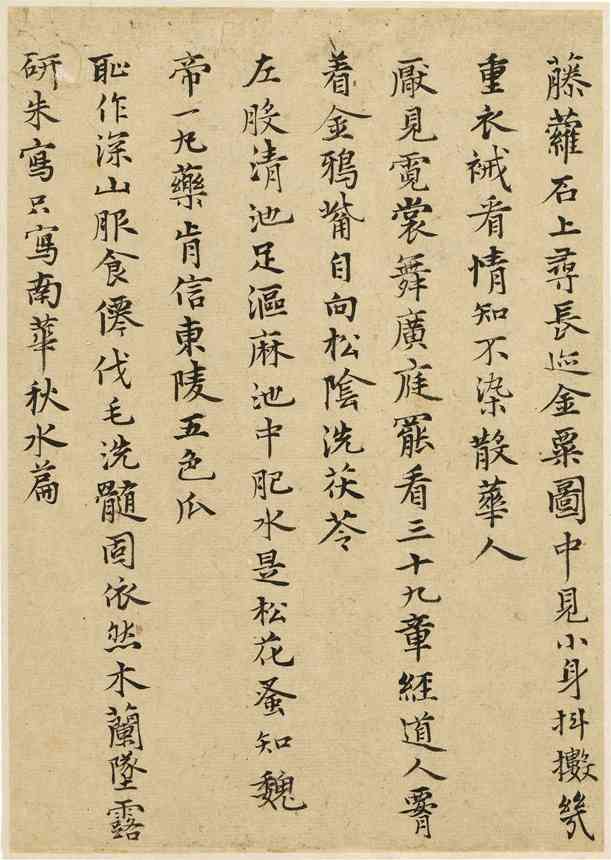 藤蘿石上尋長巡金粟圖中見小身抖擻幾
重衣祴看情知不染散華人
厭見霓裳舞廣庭罷看三十九章經道人
着金鵶觜自向松陰洗茯苓
左股清池足漚麻池中肥水是松花蚤知魏
帝一丸藥肯信東陵五色瓜
恥作深山服食僊伐毛洗髓固依然木蘭墜露
研朱寫只寫南華秋水篇